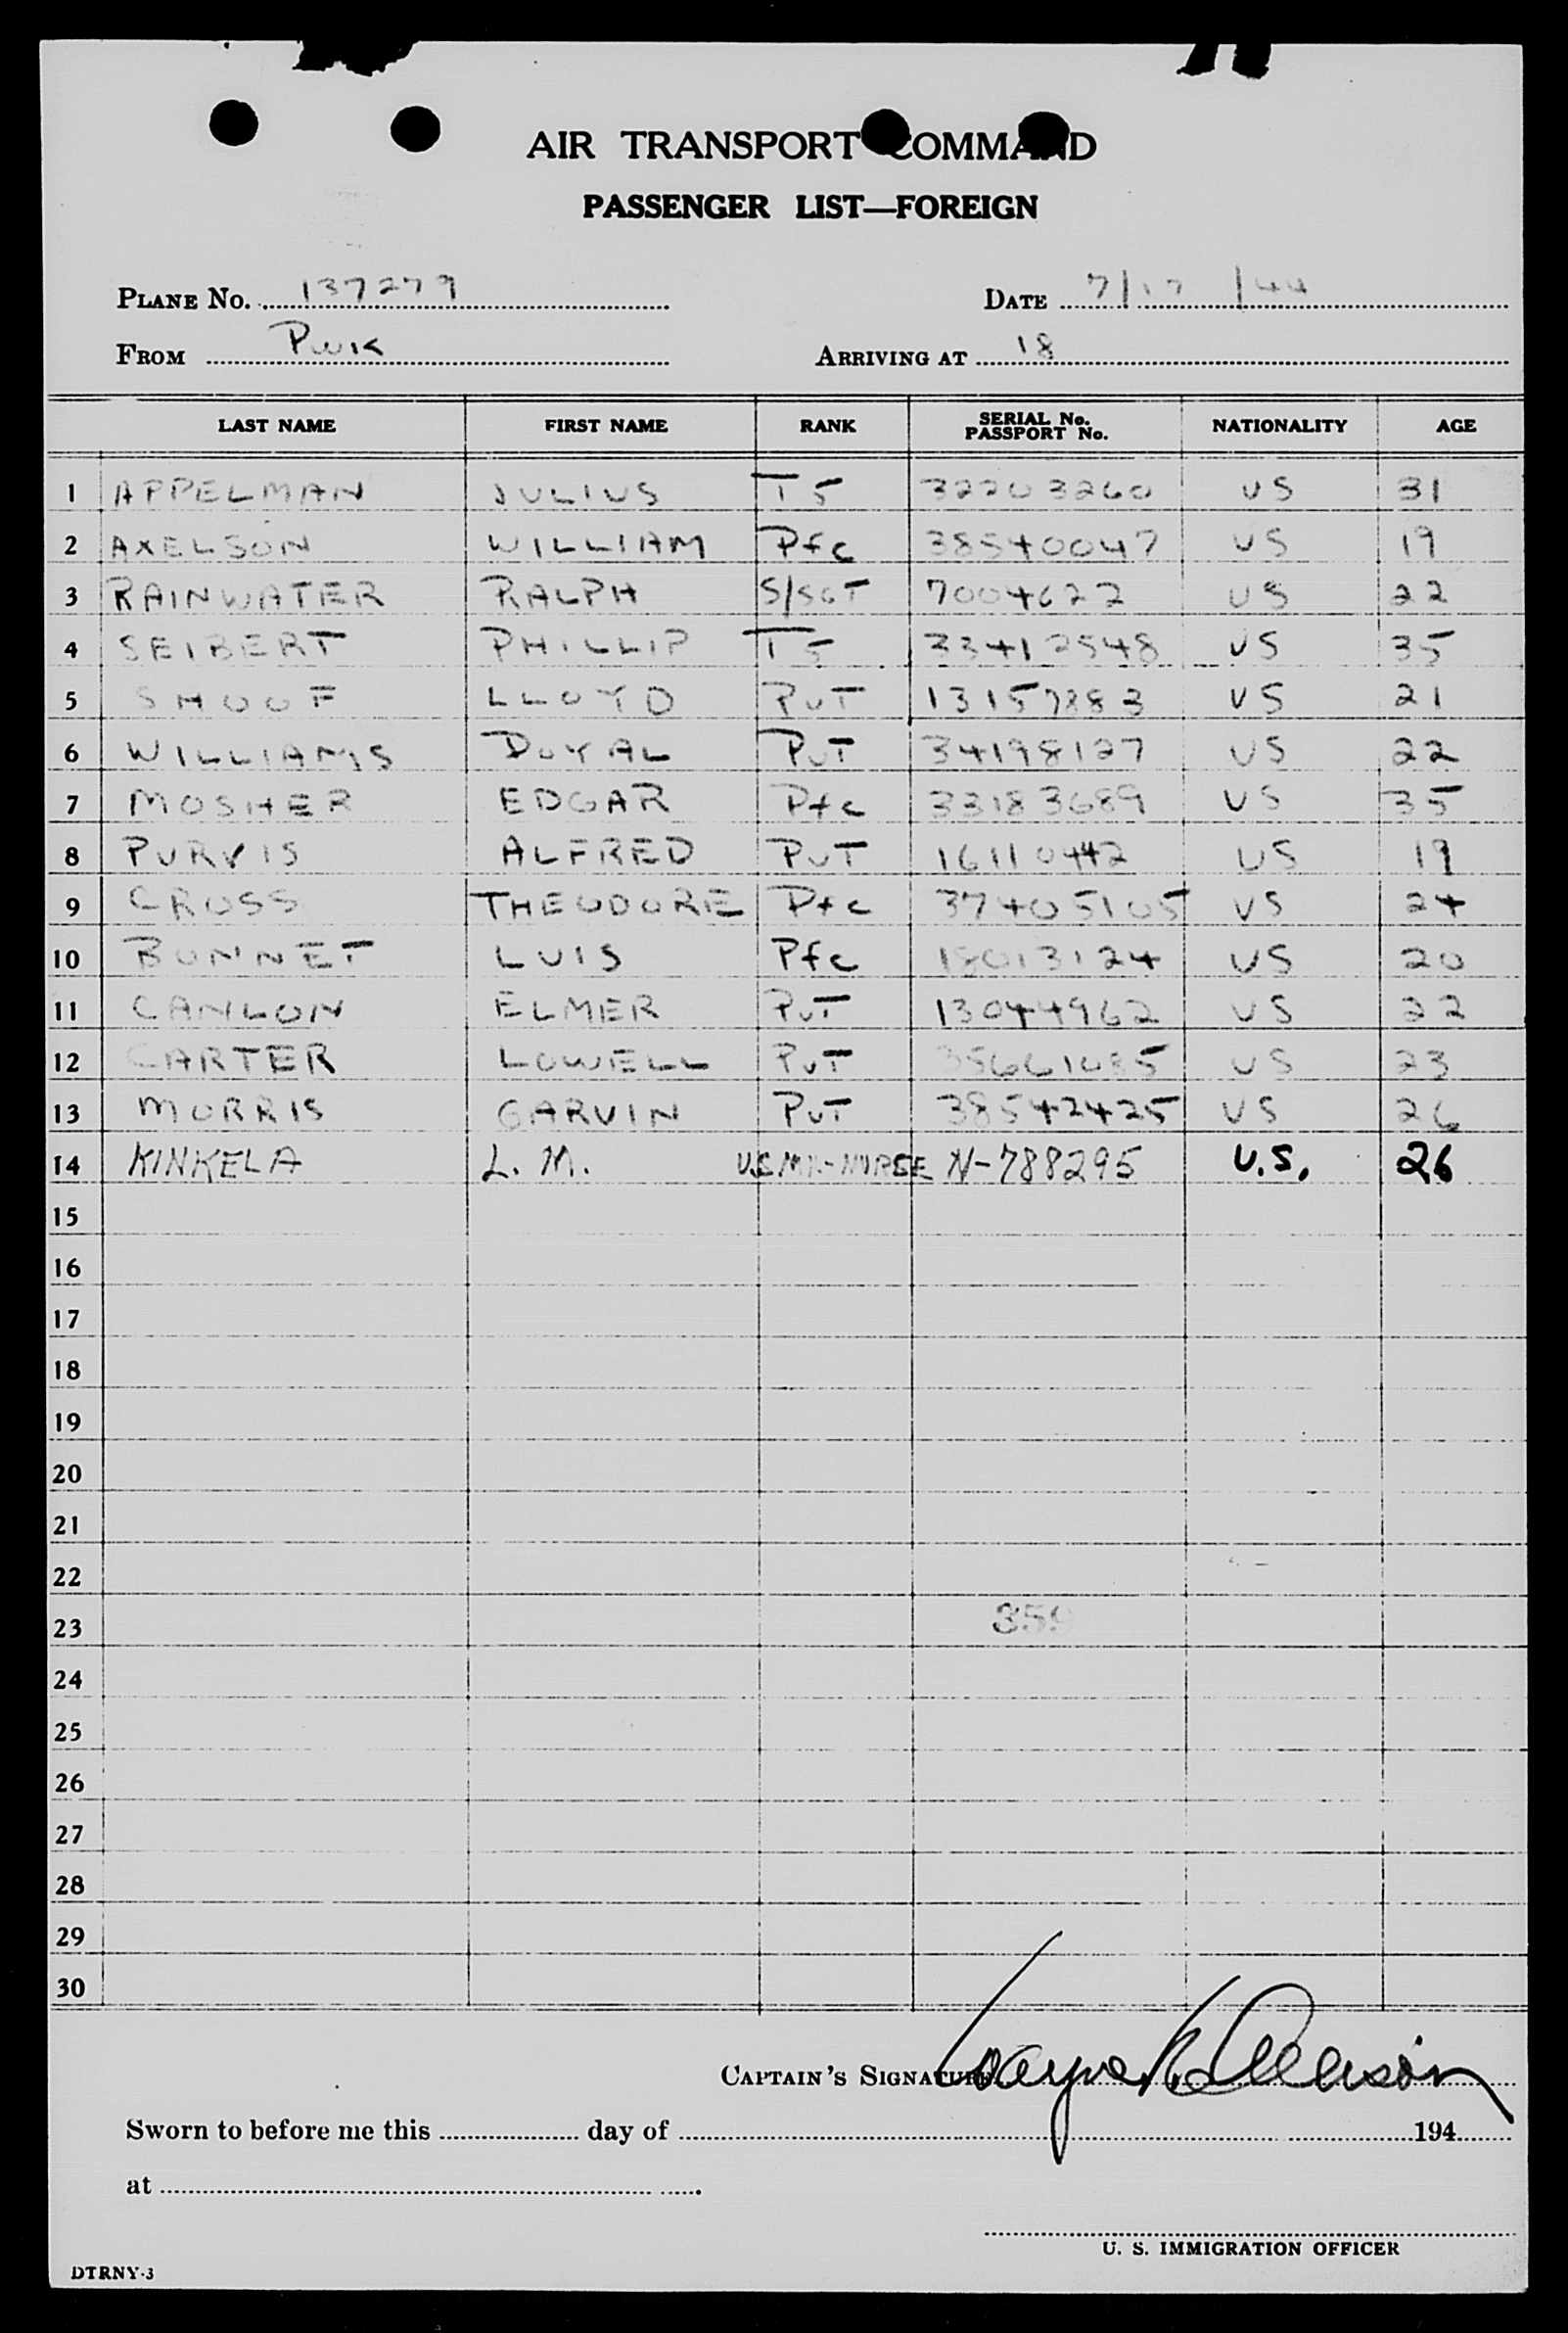 AIR TRANSPORT COMMAND
PASSENGER LIST—FOREIGN
PLANE No. 137279 DATE 7/17/44
FROM PWIK ARRIVING AT 18
LAST NAME FIRST NAME RANK SERIAL No. PASSPORT No. NATIONALITY AGE
1 APPELMAN JULIUS T5 32203260 US 31
2 AXELSON WILLIAM Pfc 38540047 US 19
3 RAINWATER RALPH S/SGT 7004622 US 22
4 SEIBERT PHILLIP T5 33412548 US 35
5 SHOOF LLOYD PVT 13157883 US 21
6 WILLIAMS DOYAL PVT 34198127 US 22
7 MOSHER EDGAR Pfc 33183689 US 35
8 PURVIS ALFRED PVT 16110442 US 19
9 CROSS THEODORE Pfc 37405105 US 24
10 BONNET LUIS Pfc 18013124 US 20
11 CANLON ELMER PVT 13044962 US 22
12 CARTER LOWELL PVT 35661685 US 23
13 MORRIS GARVIN PVT 38542425 US 26
14 KINKELA L. M. NURSE N-788295 U.S. 26
15
16
17
18
19
20
21
22
23
24
25
26
27
28
29
30
CAPTAIN'S SIGNATURE Wayne
Sworn to before me this day of 194
at
U. S. IMMIGRATION OFFICER
DTRNY-3